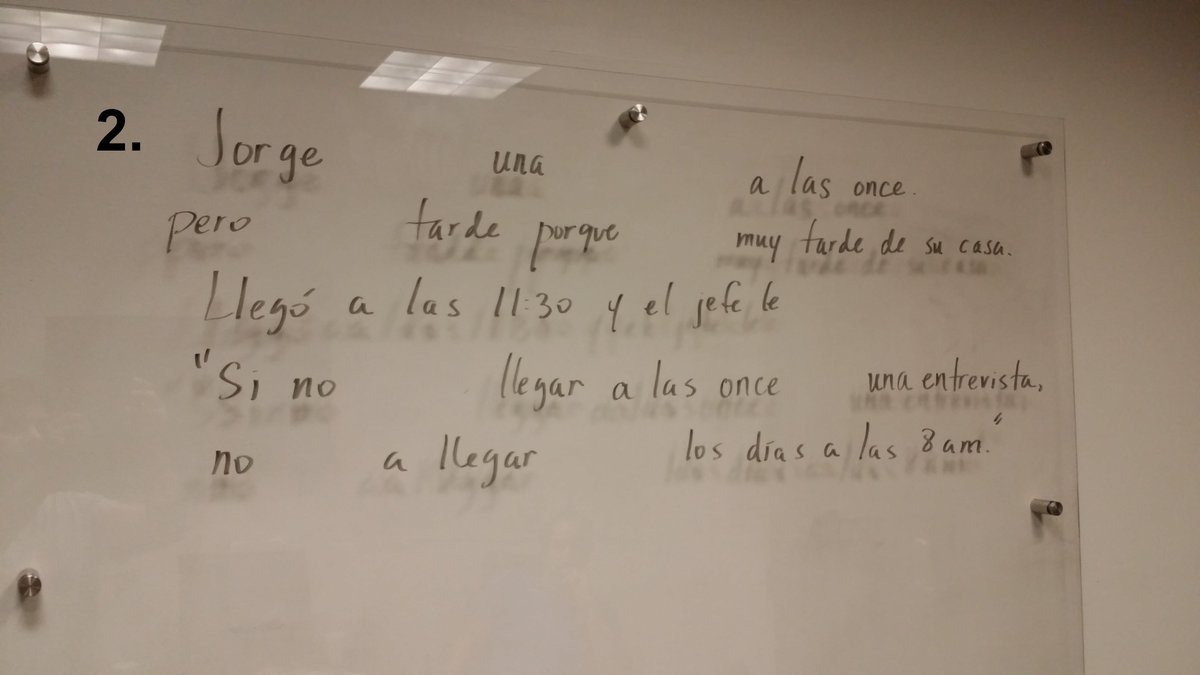 2. Jorge una a las once.
pero tarde porque muy tarde de su casa.
Llegó a las 11:30 y el jefe le
"Si no llegar a las once una entrevista,
no a llegar los días a las 8 am."